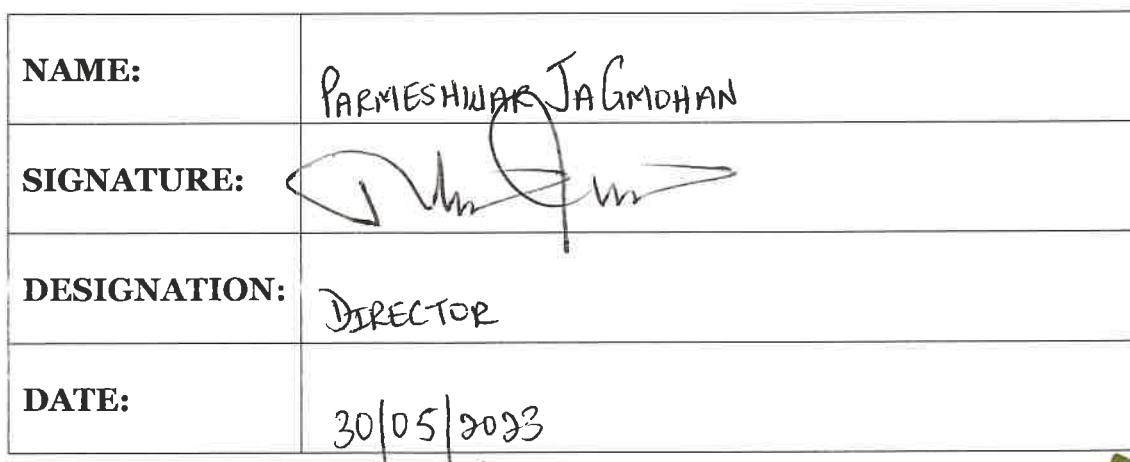 NAME: PARMESHWAR JAGMOHAN
SIGNATURE:
DESIGNATION: DIRECTOR
DATE: 30/05/2023